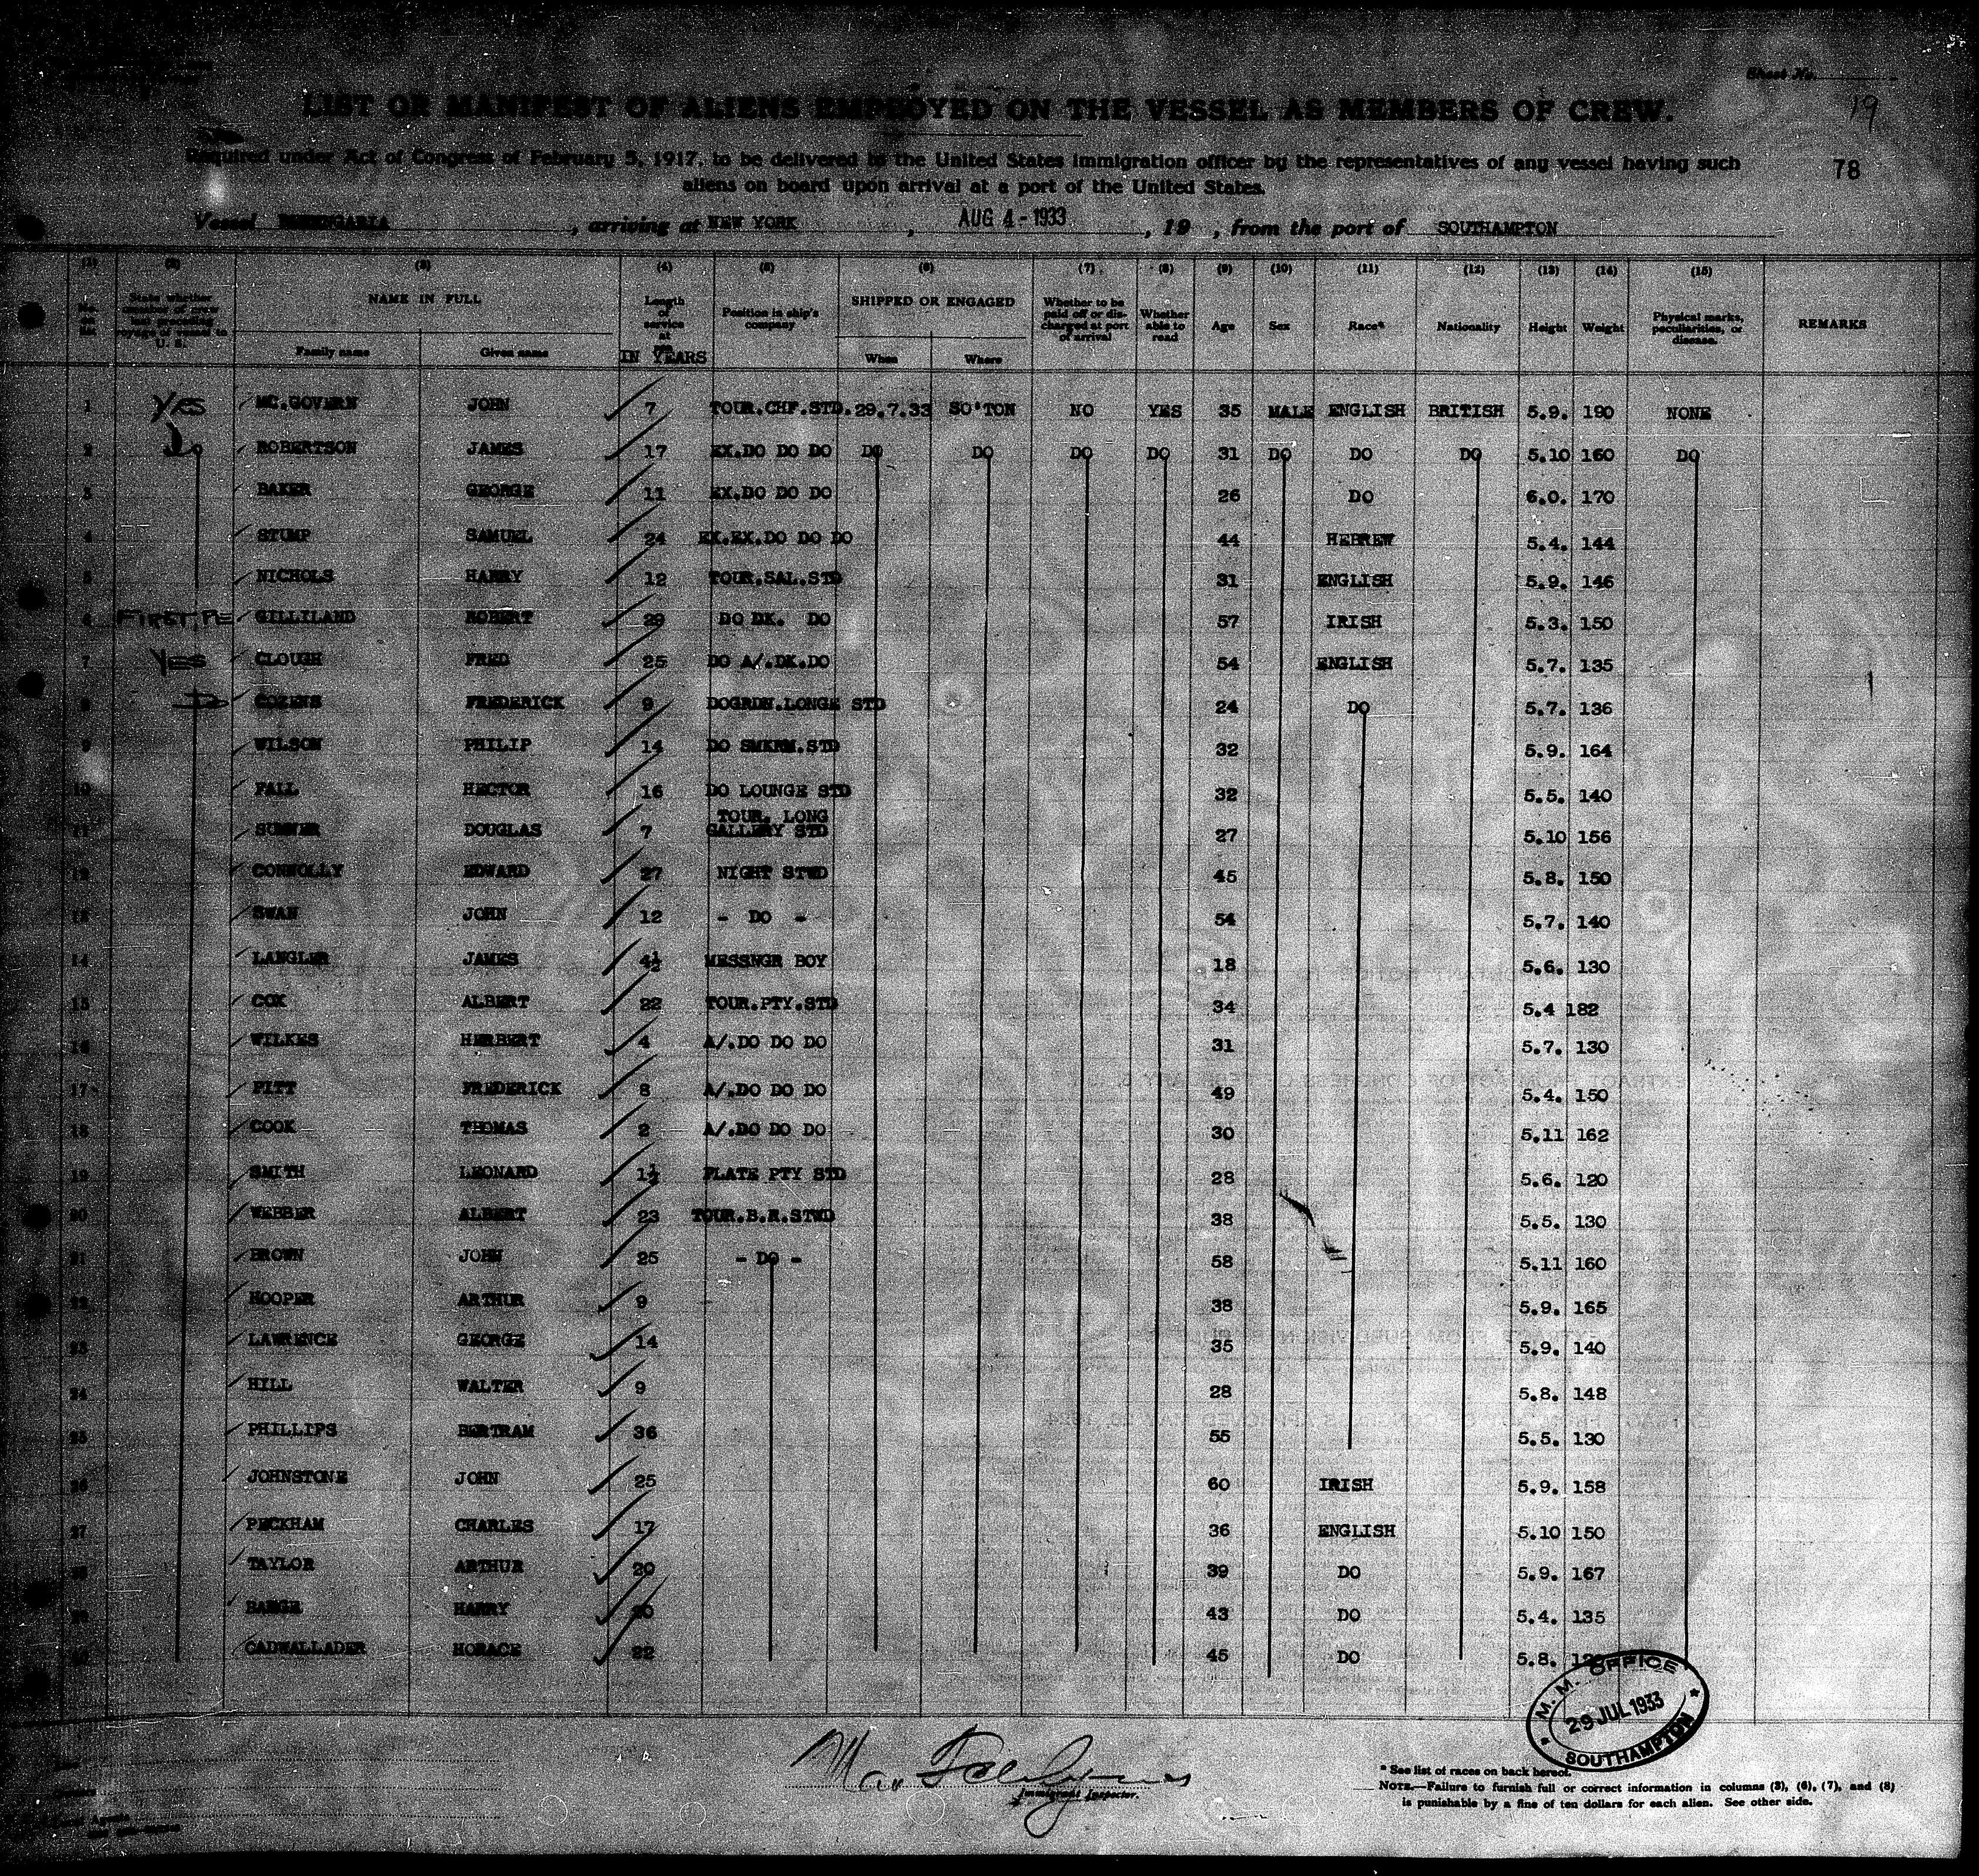 Sheet No.
19
LIST OR MANIFEST OF ALIENS EMPLOYED ON THE VESSEL AS MEMBERS OF CREW.
Required under Act of Congress of February 5, 1917, to be delivered to the United States immigration officer by the representatives of any vessel having such
78
aliens on board upon arrival at a port of the United States.
Vessel BERENGARIA, arriving at NEW YORK, AUG 4 - 1933, 19 , from the port of SOUTHAMPTON
(1) (2) (3) (4) (5) (6) (7) (8) (9) (10) (11) (12) (13) (14) (15)
State whether
U. S.
NAME IN FULL
Family name Given name
Length of service at
IN YEARS
Position in ship's company
SHIPPED OR ENGAGED
When Where
Whether to be paid off or discharged at port of arrival
Whether able to read
Age Sex Race* Nationality Height Weight
Physical marks, peculiarities, or disease.
REMARKS
1 YES MC.GOVERN JOHN 7 TOUR.CHF.STD. 29.7.33 SO'TON NO YES 35 MALE ENGLISH BRITISH 5.9. 190 NONE
2 Do ROBERTSON JAMES 17 EX.DO DO DO DO DO DO DO 31 DO DO DO 5.10 160 DO
3 BAKER GEORGE 11 EX.DO DO DO 26 DO 6.0. 170
4 STUMP SAMUEL 24 EX.EX.DO DO DO 44 HEBREW 5.4. 144
5 NICHOLS HARRY 12 TOUR.SAL.STD 31 ENGLISH 5.9. 146
6 GILLILAND ROBERT 29 DO DK. DO 57 IRISH 5.3. 150
7 YES CLOUGH FRED 25 DO A/.DK.DO 54 ENGLISH 5.7. 135
8 Do COZENS FREDERICK 9 DOGRDN.LONGE STD 24 DO 5.7. 136
9 WILSON PHILIP 14 DO SMKRM.STD 32 5.9. 164
10 FALL HECTOR 16 DO LOUNGE STD 32 5.5. 140
11 SUMNER DOUGLAS 7 TOUR. LONG GALLERY STD 27 5.10 156
12 CONNOLLY EDWARD 27 NIGHT STWD 45 5.8. 150
13 SWAN JOHN 12 - DO - 54 5.7. 140
14 LANGLER JAMES 4½ MESSNGR BOY 18 5.6. 130
15 COX ALBERT 22 TOUR.PTY.STD 34 5.4 182
16 WILKES HERBERT 4 A/.DO DO DO 31 5.7. 130
17 PITT FREDERICK 8 A/.DO DO DO 49 5.4. 150
18 COOK THOMAS 2 A/.DO DO DO 30 5.11 162
19 SMITH LEONARD 1½ PLATE PTY STD 28 5.6. 120
20 WEBBER ALBERT 23 TOUR.B.R.STWD 38 5.5. 130
21 BROWN JOHN 25 - DO - 58 5.11 160
22 HOOPER ARTHUR 9 38 5.9. 165
23 LAWRENCE GEORGE 14 35 5.9. 140
24 HILL WALTER 9 28 5.8. 148
25 PHILLIPS BERTRAM 36 55 5.5. 130
26 JOHNSTONE JOHN 25 60 IRISH 5.9. 158
27 PECKHAM CHARLES 17 36 ENGLISH 5.10 150
28 TAYLOR ARTHUR 20 39 DO 5.9. 167
29 HARRY 43 DO 5.4. 135
30 CADWALLADER HORACE 22 45 DO 5.8.
M. M. OFFICE
29 JUL 1933
SOUTHAMPTON
Immigrant Inspector.
* See list of races on back hereof.
NOTE.—Failure to furnish full or correct information in columns (3), (6), (7), and (8)
is punishable by a fine of ten dollars for each alien. See other side.